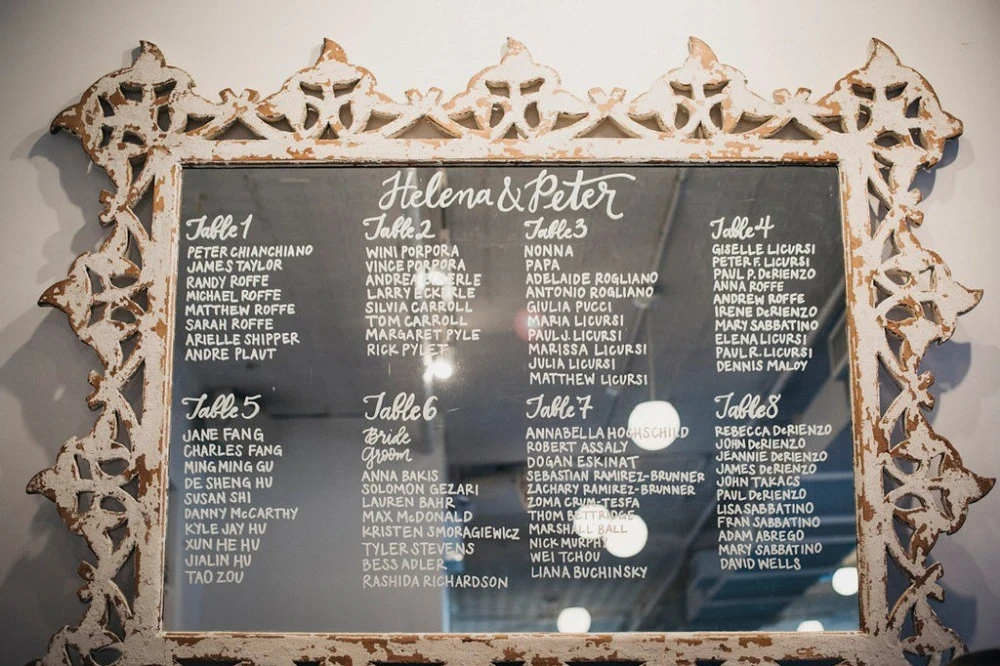 Helena & Peter
Table 1
PETER CHIANCHIANO
JAMES TAYLOR
RANDY ROFFE
MICHAEL ROFFE
MATTHEW ROFFE
SARAH ROFFE
ARIELLE SHIPPER
ANDRE PLAUT
Table 2
WINI PORPORA
VINCE PORPORA
ANDREA ECKERLE
LARRY ECKERLE
SILVIA CARROLL
TOM CARROLL
MARGARET PYLE
RICK PYLE
Table 3
NONNA
PAPA
ADELAIDE ROGLIANO
ANTONIO ROGLIANO
GIULIA PUCCI
MARIA LICURSI
PAUL J. LICURSI
MARISSA LICURSI
JULIA LICURSI
MATTHEW LICURSI
Table 4
GISELLE LICURSI
PETER F. LICURSI
PAUL P. DeRIENZO
ANNA ROFFE
ANDREW ROFFE
IRENE DeRIENZO
MARY SABBATINO
ELENA LICURSI
PAUL R. LICURSI
DENNIS MALOY
Table 5
JANE FANG
CHARLES FANG
MING MING GU
DE SHENG HU
SUSAN SHI
DANNY McCARTHY
KYLE JAY HU
XUN HE HU
JIALIN HU
TAO ZOU
Table 6
Bride
Groom
ANNA BAKIS
SOLOMON GEZARI
LAUREN BAHR
MAX McDONALD
KRISTEN SMORAGIEWICZ
TYLER STEVENS
BESS ADLER
RASHIDA RICHARDSON
Table 7
ANNABELLA HOCHSCHILD
ROBERT ASSALY
DOGAN ESKINAT
SEBASTIAN RAMIREZ-BRUNNER
ZACHARY RAMIREZ-BRUNNER
ZOMA CRUM-TESFA
THOM BETTRIDGE
MARSHALL BALL
NICK MURPHY
WEI TCHOU
LIANA BUCHINSKY
Table 8
REBECCA DeRIENZO
JOHN DeRIENZO
JEANNIE DeRIENZO
JAMES DeRIENZO
JOHN TAKACS
PAUL DeRIENZO
LISA SABBATINO
FRAN SABBATINO
ADAM ABREGO
MARY SABBATINO
DAVID WELLS